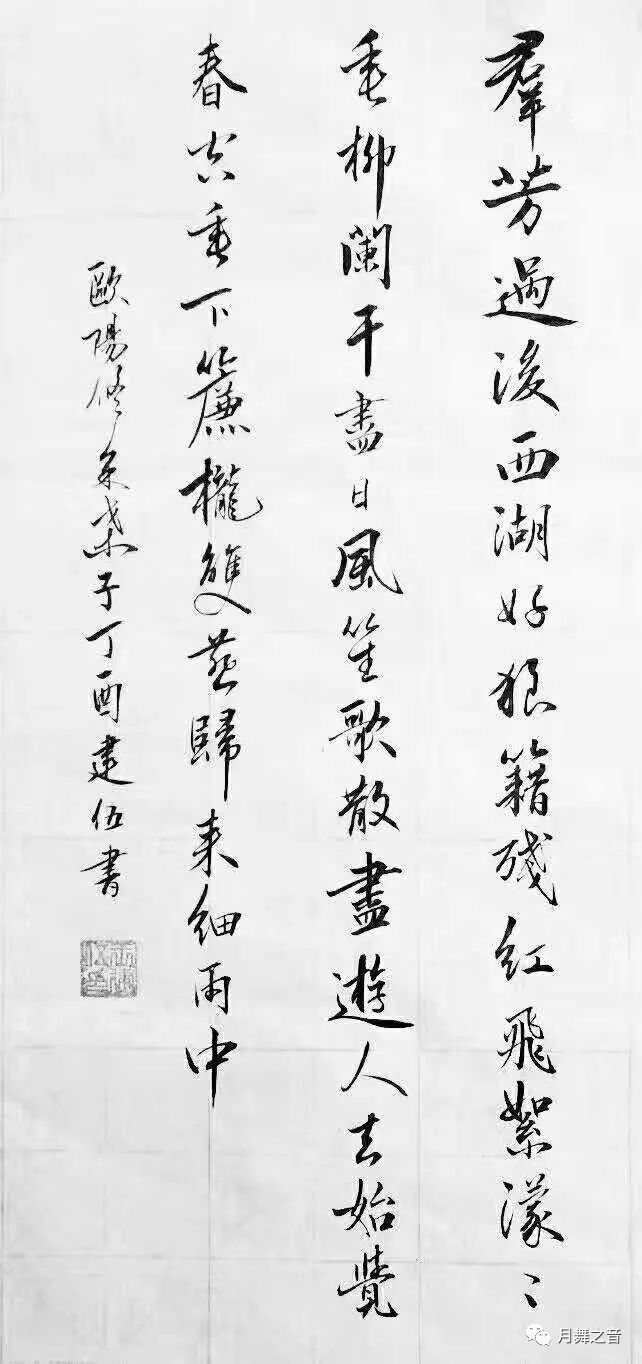 羣芳過後西湖好狼籍殘紅飛絮濛〻
垂柳闌干盡日風笙歌散盡遊人去始覺
春空垂下簾櫳雙燕歸來細雨中
歐陽修采桑子丁酉建伍書
月舞之音